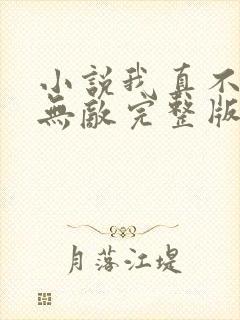 小説我真不
無敵完整版
月落江堤